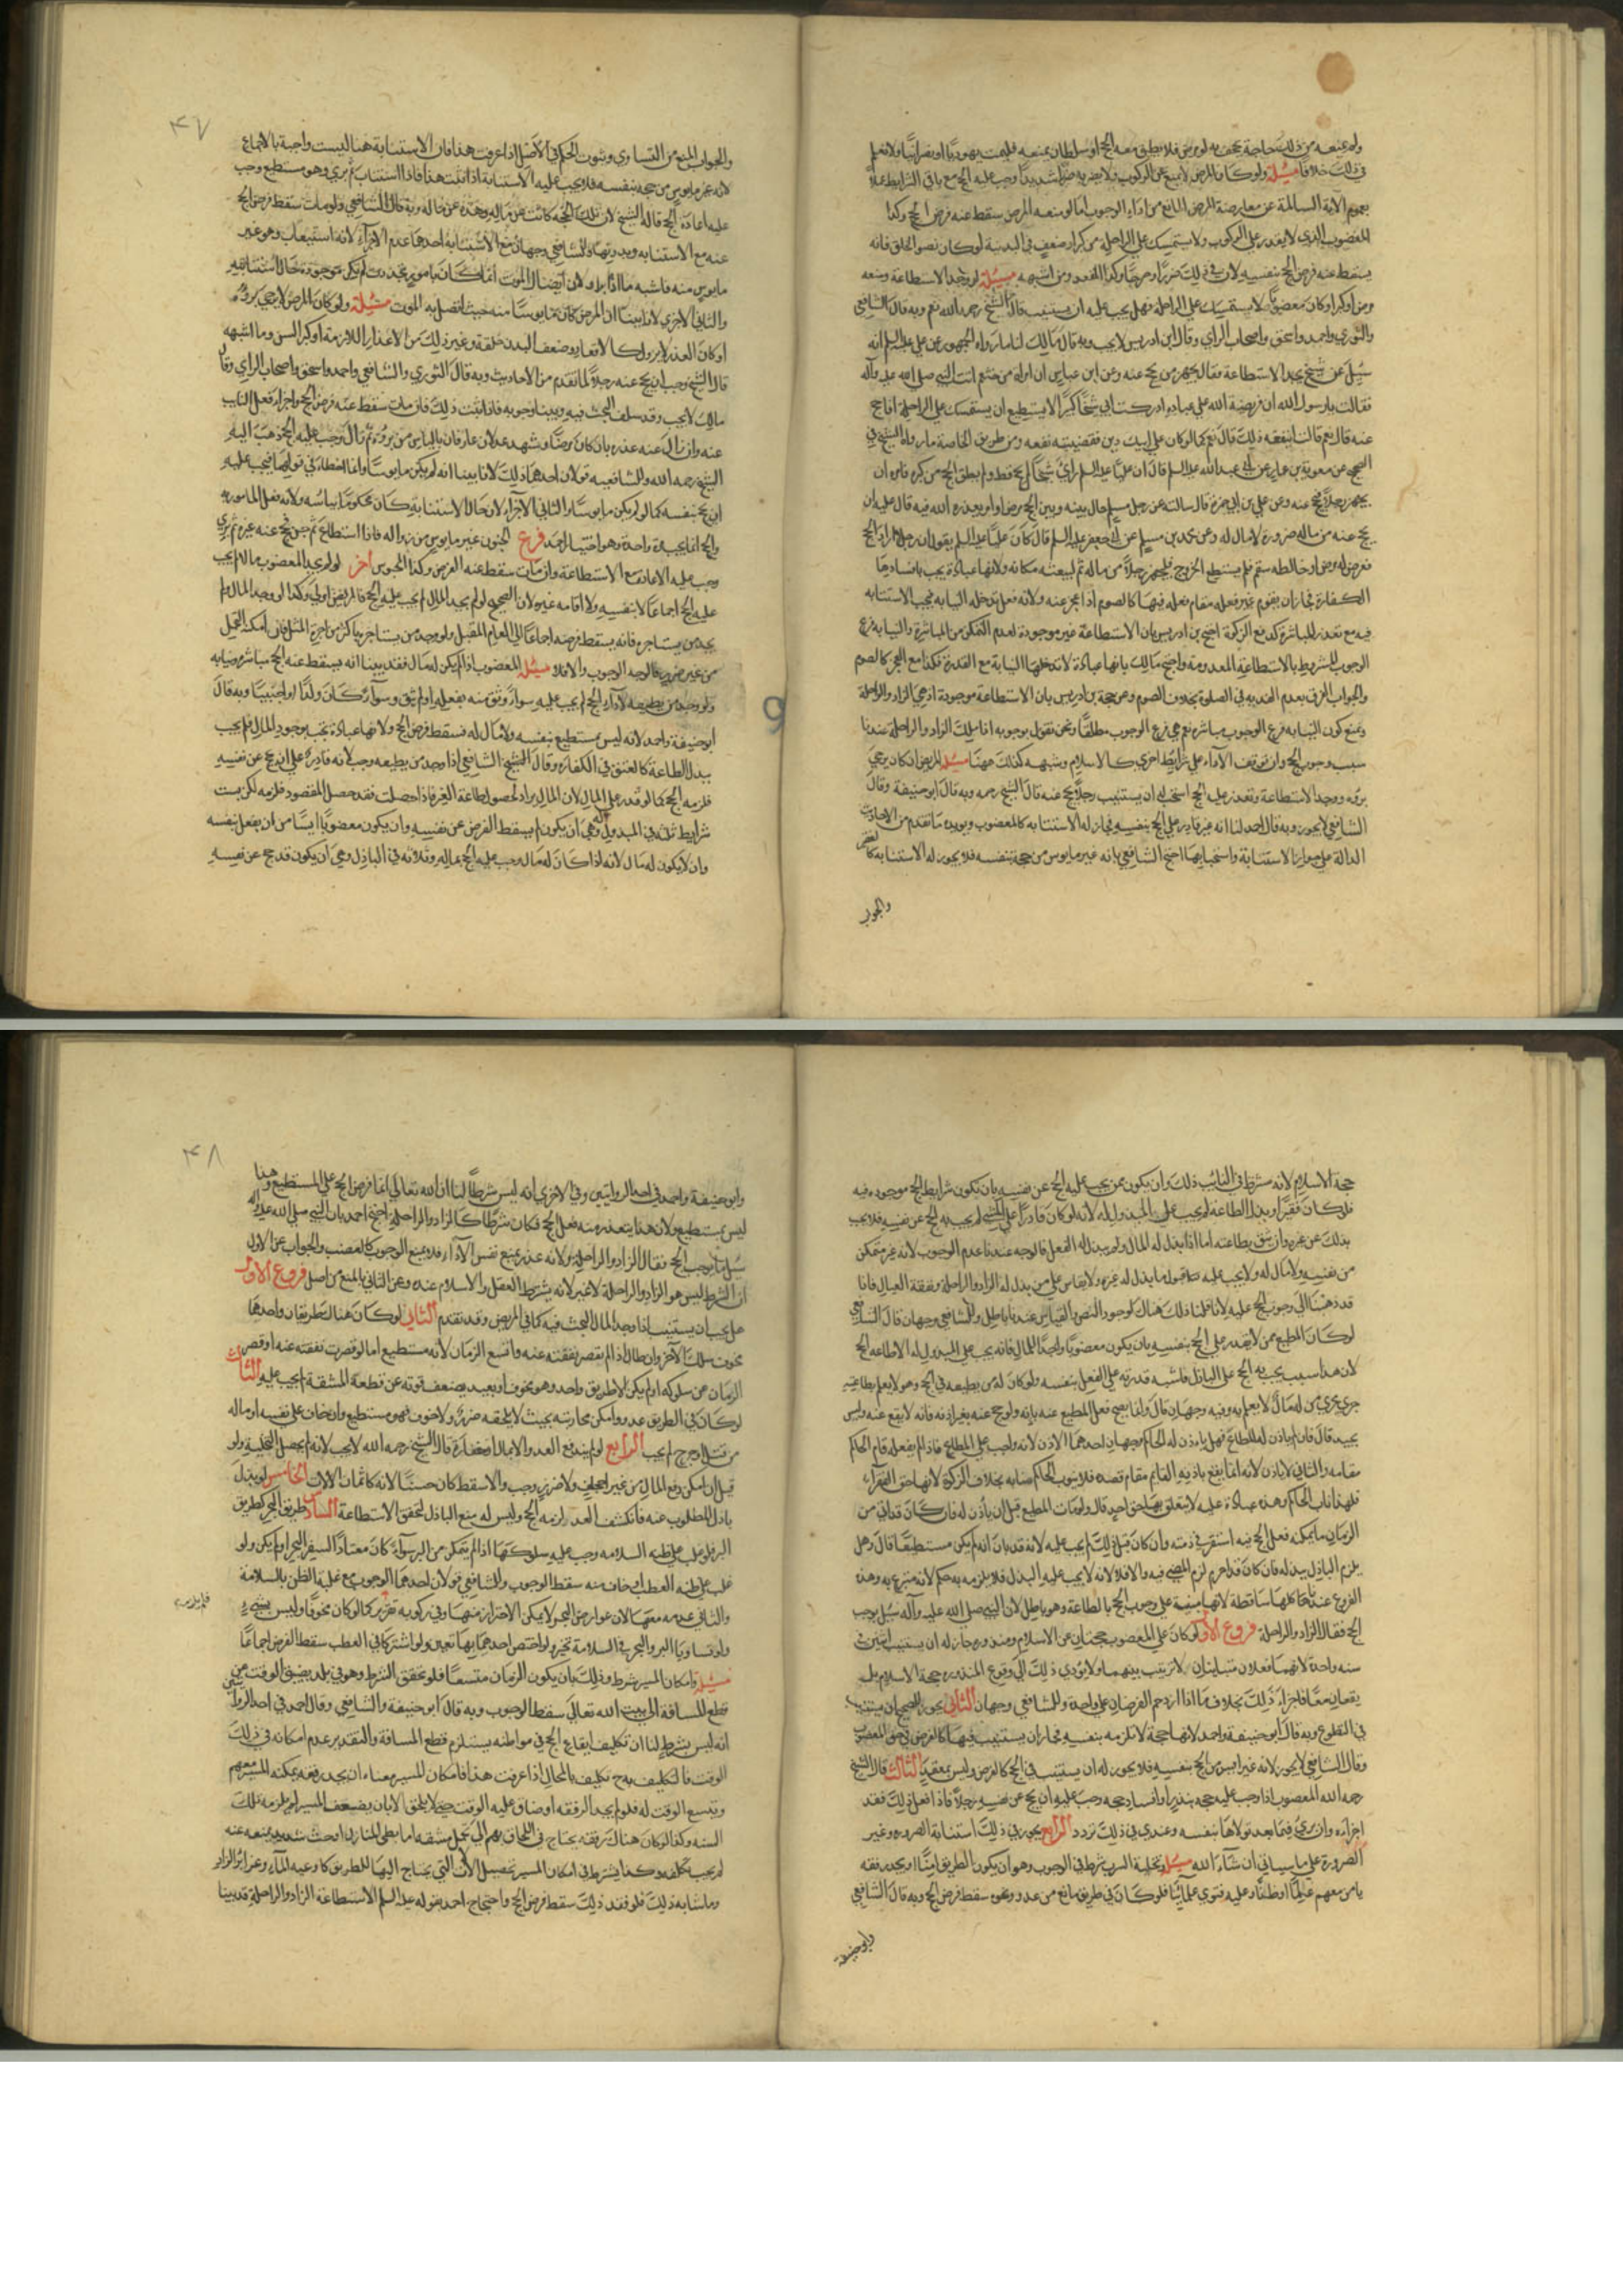 ولم يمنعه من ذلك حاجة تجحف به او مرض فلا يطيق معه الحج او سلطان يمنعه فليمت يهوديا او نصرانيا ولا نعلم
في ذلك خلافا مسئلة ولو كان المرض لا يمنع عن الركوب ولا يضر به ضررا شديدا وجب عليه الحج مع باقي الشرايط عملا
بعموم الآية السالمة عن معارضة المرض المانع من اداء الوجوب اما لو منعه المرض سقط عنه فرض الحج وكذا
المعضوب الذي لا يقدر على الركوب ولا يستمسك على الراحلة من كبر او ضعف في البدنية او كان نضو الخلق فانه
يسقط عنه فرض الحج بنفسه لان في ذلك ضررا وحرجا وكذا المقعد ومن اشبهه مسئلة لو وجد الاستطاعة ومنعه
مرض او كبر او كان معضوبا لا يستمسك على الراحلة فهل يجب عليه ان يستنيب قال الشيخ رحمه الله نعم وبه قال الشافعي
والثوري واحمد واسحق واصحاب الراي وقال ابن ادريس لا يجب وبه قال مالك لنا ما رواه الجمهور عن علي عليه السلم انه
سئل عن شيخ يجد الاستطاعة فقال يجهز من يحج عنه وعن ابن عباس ان امراة من خثعم اتت النبي صلى الله عليه وآله
فقالت يا رسول الله ان فريضة الله على عباده ادركت ابي شيخا كبيرا لا يستطيع ان يستمسك على الراحلة افاحج
عنه قال نعم قالت اينفعه ذلك قال نعم كما لو كان على ابيك دين فقضيتيه نفعه ومن طريق الخاصة ما رواه الشيخ في
الصحيح عن معوية بن عمار عن ابي عبد الله عليه السلم قال ان عليا عليه السلم راى شيخا لم يحج قط ولم يطق الحج من كبره فامره ان
يجهز رجلا يحج عنه وعن علي بن ابي حمزة قال سالته عن رجل مسلم حال بينه وبين الحج مرض او امر يعذره الله فيه قال عليه ان
يحج عنه من ماله صرورة لا مال له وعن محمد بن مسلم عن ابي جعفر عليه السلم قال كان علي عليه السلم يقول ان رجلا اراد الحج
فعرض له مرض او خالطه سقم فلم يستطع الخروج فليجهز رجلا من ماله ثم ليبعثه مكانه ولانها عبادة يجب بافسادها
الكفارة فجاز ان يقوم غير فعله مقام فعله فيها كالصوم اذا عجز عنه ولانه فعل تدخله النيابة فيجب الاستنابة
فيه مع تعذر المباشرة كدفع الزكوة احتج بن ادريس بان الاستطاعة غير موجودة لعدم التمكن من المباشرة والنيابة فرع
الوجوب المشروط بالاستطاعة المعدومة واحتج مالك بانها عبادة لا تدخلها النيابة مع القدرة فكذا مع العجز كالصوم
والجواب الفرق بعدم الفدية في الصلوة بخلاف الصوم وعن حجة بن ادريس بان الاستطاعة موجودة اذ هي الزاد والراحلة
ونمنع كون النيابة فرع الوجوب مباشرة نعم هي فرع الوجوب مطلقا ونحن نقول بوجوبه اذا ملك الزاد والراحلة عندنا
سبب وجوب الحج وان توقف الآداء على شرايط اخرى كالاسلام وشبهه كذلك ههنا مسئلة المريض ان كان يرجى
برؤه ووجد الاستطاعة وتعذر عليه الحج استحب له ان يستنيب رجلا يحج عنه قال الشيخ رحمه وبه قال ابو حنيفة وقال
الشافعي لا يجوز وبه قال احمد لنا انه غير قادر على الحج بنفسه فجاز له الاستنابة كالمعضوب ويؤيده ما تقدم من الاحاديث
الدالة على جواز الاستنابة واستحبابها احتج الشافعي بانه غير مايوس من حجه بنفسه فلا يجوز له الاستنابة كالفقير
والجواب
۴۷
والجواب المنع من التساوي وثبوت الحكم في الاصل اذا عرفت هذا فان الاستنابة هنا ليست واجبة بالاجماع
لانه غير مايوس من حجه بنفسه فلا يجب عليه الاستنابة اذا ثبت هذا فاذا استناب ثم بري وهو مستطيع وجب
عليه اعادة الحج قاله الشيخ لان تلك الحجة كانت عن ماله وهذه عن حاله وبه قال الشافعي ولو مات سقط فرض الحج
عنه مع الاستنابة وبدونها وللشافعي وجهان مع الاستنابة احدهما عدم الاجزاء لانه استناب وهو غير
مايوس منه فاشبه ما اذا برا ولان ايضال الموت انما كان بامور تجددت لم تكن موجودة حال استنابته
والثاني الاجزي لانا بينا ان المرض كان مايوسا منه حيث اتصل به الموت مسئلة ولو كان المرض لا يرجى برؤه
او كان العذر لا يزول كالاقعاد وضعف البدن خلقة وغير ذلك من الاعذار اللازمة او كبر السن وما اشبهه
قال الشيخ وجب ان يحج عنه رجلا لما تقدم من الاحاديث وبه قال الثوري والشافعي واحمد واسحق واصحاب الراي وقال
مالك لا يجب وقد سلف البحث فيه وبينا وجوبه فاذا ثبت ذلك فان مات سقط عنه فرض الحج واجزاه فعل النايب
عنه وان زال عنه عذره بان كان مرضا وشهد عدلان عارفان بالياس من بروه ثم زال وجب عليه الحج ذهب اليه
الشيخ رحمه الله وللشافعية قولان احدهما ذلك لانا بينا انه لم يكن مايوسا وانما الخطاء في قولهما فيجب عليه
ان يحج بنفسه كما لو لم يكن مايوسا والثاني الاجزاء لان حال الاستنابة كان محكوما باياسه ولانه فعل المامور به
والحج انما يجب مرة واحدة وهو اختيار احمد فرع المجنون غير مايوس من زواله فاذا استطاع ثم جن لم يحج عنه غيره ثم بري
وجب عليه الاعادة مع الاستطاعة وان مات سقط عنه الفرض وكذا المحبوس آخر لو لم يجد المعضوب مالا لم يجب
عليه الحج اجماعا لا بنفسه ولا اقامه غيره لان الصحيح لو لم يجد المال لم يجب عليه الحج فالمريض اولى وكذا لو وجد المال ولم
يجد من يستاجره فانه يسقط فرضه اجماعا الى العام المقبل ولو وجد من يستاجره باكثر من اجرة المثل فان امكنه التحمل
من غير ضرر فالوجه الوجوب والا فلا مسئلة المعضوب اذا لم يكن له مال فقد بينا انه يسقط عنه الحج مباشرة ونيابة
ولو وجد من يطيعه لآداء الحج لم يجب عليه سواء وثق منه بفعله او لم يثق وسواء كان ولدا او اجنبيا وبه قال
ابو حنيفة واحمد لانه ليس بمستطيع بنفسه ولا مال له فسقط فرض الحج ولانها عبادة تجب بوجود المال فلم يجب
ببذل الطاعة كالعتق في الكفارة وقال الشيخ الشافعي اذا وجد من يطيعه وجب لانه قادر على ان يحج عن نفسه
فلزمه الحج كما لو قدر على المال لان المال يراد لحصول طاعة الغير فاذا حصلت فقد حصل المقصود فلزمه لكن بست
شرايط ثلثة في المبذول له وهي ان يكون لم يسقط الفرض عن نفسه وان يكون معضوبا آيسا من ان يفعل بنفسه
وان لا يكون له مال لانه اذا كان له مال وجب عليه الحج بماله وثلاثة في الباذل وهي ان يكون قد حج عن نفسه
حجة الاسلام لانه شرط في النائب ذلك وان يكون ممن يجب عليه الحج عن نفسه بان يكون شرايط الحج موجودة فيه
فلو كان فقيرا وبذل الطاعة لم يجب على المبذول له لانه لو كان قادرا على المشي لم يجب به الحج عن نفسه فلا يجب
بذلك عن غيره وان يثق بطاعته اما اذا بذل له المال ولم يبذل له الفعل فالوجه عندنا عدم الوجوب لانه غير متمكن
من نفسه ولا مال له ولا يجب عليه قبول ما يبذل له غيره ولا يقاس على من بذل له الزاد والراحلة ونفقة العيال فانا
قد ذهبنا الى وجوب الحج عليه لانا قلنا ذلك هناك لوجود النص والقياس عندنا باطل وللشافعي وجهان قال الشافعي
لو كان المطيع ممن لا يقدر على الحج بنفسه بان يكون معضوبا واجدا للمال فانه يجب على المبذول له الاطاعه الحج
لان هذا سبب يجب به الحج على الباذل فاشبه قدرته على الفعل بنفسه ولو كان له من يطيعه في الحج وهو لا يعلم بطاعته
جرى مجرى من له مال لا يعلم به وفيه وجهان قال وانما يصح فعل المطيع عنه باذنه ولو حج عنه بغير اذنه فانه لا يقع عنه وليس
بجيد قال فان لم ياذن له المطاع فهل ياذن له الحاكم وجهان احدهما الاذن لانه واجب على المطاع فاذا لم يفعله قام الحاكم
مقامه والثاني لا ياذن لانه انما يقع باذنه القايم مقام قصده فلا ينوب الحاكم منابه بخلاف الزكوة لانها حق الفقراء
فلهذا ناب الحاكم وهذه عبادة عليه لا يتعلق بها حق احد قال ولو مات المطيع قبل ان ياذن له فان كان قد اتى من
الزمان ما يمكنه فعل الحج فيه استقر في ذمته وان كان قبل ذلك لم يجب عليه لانه قد بان انه لم يكن مستطيعا قال وهل
يلزم الباذل ببذله فان كان قد احرم لزم المضي فيه والا فلا لانه لا يجب عليه البذل فلا يلزمه به حكم لانه متبرع به وهذه
الفروع عندنا كلها ساقطة لانها مبنية على وجوب الحج بالطاعة وهو باطل لان النبي صلى الله عليه وآله سئل يوجب
الحج فقال الزاد والراحلة فروع الاول لو كان على المعضوب حجتان عن الاسلام ومنذورة جاز له ان يستنيب اثنين في
سنه واحدة لانهما فعلان متباينان لا ترتيب بينهما ولا يؤدي ذلك الى وقوع المنذورة حجة الاسلام بل
يقعان معا فاجزاه ذلك بخلاف ما اذا ازدحم الفرضان على واحدة وللشافعي وجهان الثاني يجوز للصحيح ان يستنيب
في التطوع وبه قال ابو حنيفة واحمد لانها حجة لا تلزمه بنفسه فجاز ان يستنيب فيها كالفرض في حق المعضوب
وقال الشافعي لا يجوز لانه غير آيس من الحج بنفسه فلا يجوز له ان يستنيب في الحج كالفرض وليس بمعتمد الثالث قال الشيخ
رحمه الله المعضوب اذا وجب عليه حجه بنذر او افساد حجه وجب عليه ان يحج عن نفسه رجلا فاذا فعل ذلك فقد
اجزاه وان برئ فيما بعد تولاها بنفسه وعندي في ذلك تردد الرابع يجوز في ذلك استنابة الصرورة وغير
الصرورة على ما سياتي ان شاء الله مسئلة وتخلية السرب شرط في الوجوب وهو ان يكون الطريق امنا او يجد رفقه
يامن معهم علما او ظنا وعليه فتوى علمائنا فلو كان في طريق مانع من عدو ونحوه سقط فرض الحج وبه قال الشافعي
وابو حنيفة
۴۸
وابو حنيفة واحمد في احد الروايتين وفي الاخرى انه ليس شرطا لنا ان الله تعالى انما فرض الحج على المستطيع وهذا
ليس بمستطيع ولان هذا يتعذر منه فعل الحج فكان شرطا كالزاد والراحلة احتج احمد بان النبي صلى الله عليه وآله
سئل ما يوجب الحج فقال الزاد والراحلة ولانه عذر يمنع نفس الآداء فلا يمنع الوجوب كالعضب والجواب عن الاول
ان الشرط ليس هو الزاد والراحلة لا غير لانه يشترط العقل والاسلام عنده وعن الثاني بالمنع من اصل فروع الاول
هل يجب ان يستنيب اذا وجد المال البحث فيه كما في المريض وقد تقدم الثاني لو كان هناك طريقان واحدهما
مخوف سلك الآخر وان طال اذا لم يقصر نفقته عنه واتسع الزمان لانه مستطيع اما لو قصرت نفقته عنه او قصر
الزمان عن سلوكه او لم يكن الا طريق واحد وهو مخوف او بعيد يضعف قوته عن قطعه للمشقة لم يجب عليه الثالث
لو كان في الطريق عدو وامكن محاربته بحيث لا يلحقه ضرر ولا خوف فهو مستطيع وان خاف على نفسه او ماله
من قتل او جرح لم يجب الرابع لو لم يندفع العدو الا بمال او خفارة قال الشيخ رحمه الله لا يجب لانه لم يحصل التخلية ولو
قيل ان امكن دفع المال من غير اجحاف ولا ضرر وجب والا سقط كان حسنا لانه كاثمان الآلات الخامس لو بذل
باذل المطلوب عنه فانكشف العدو لزمه الحج وليس له منع الباذل لتحقق الاستطاعة السادس طريق البحر كطريق
البر فلو غلب على ظنه السلامة وجب عليه سلوكها اذا لم يتمكن من البر سواء كان معتادا لسفر البحر او لم يكن ولو
غلب على ظنه العطب او خاف منه سقط الوجوب وللشافعي قولان احدهما الوجوب مع غلبة الظن بالسلامة
والثاني عدمه معها لان عوارض البحر لا يمكن الاحتراز منها وفي ركوبه تغرير كما لو كان مخوفا وليس بشيء
ولو تساويا البر والبحر في السلامة تخير ولو اختص احدهما بها تعين ولو اشتركا في العطب سقط الفرض اجماعا
مسئلة وامكان المسير شرط وذلك بان يكون الزمان متسعا فلو تحقق الشرط وهو في بلد يضيق الوقت عن
قطع المسافة الى بيت الله تعالى سقط الوجوب وبه قال ابو حنيفة والشافعي وقال احمد في احد الروايتين
انه ليس بشرط لنا ان تكليف ايقاع الحج في مواطنه يستلزم قطع المسافة والتقدير عدم امكانه في ذلك
الوقت فالتكليف به ح تكليف بالمحال اذا عرفت هذا فامكان المسير معناه ان يجد رفقه يمكنه المسير معهم
ويتسع الوقت له فلو لم يجد الرفقه او ضاق عليه الوقت حتى لا يلحق الا بان يضعف المسير لم يلزمه تلك
السنه وكذا لو كان هناك رفقه يحتاج في اللحاق بهم الى تحمل مشقه اما بطي المنازل او حث شديد يضعف عنه
لم يجب تكلفه وكذا يشترط في امكان المسير تحصيل الآلات التي يحتاج اليها للطريق كاوعية الماء وغرائر الزاد
وما شابه ذلك فلو فقد ذلك سقط فرض الحج واحتجاج احمد بقوله عليه السلم الاستطاعة الزاد والراحلة قد بينا